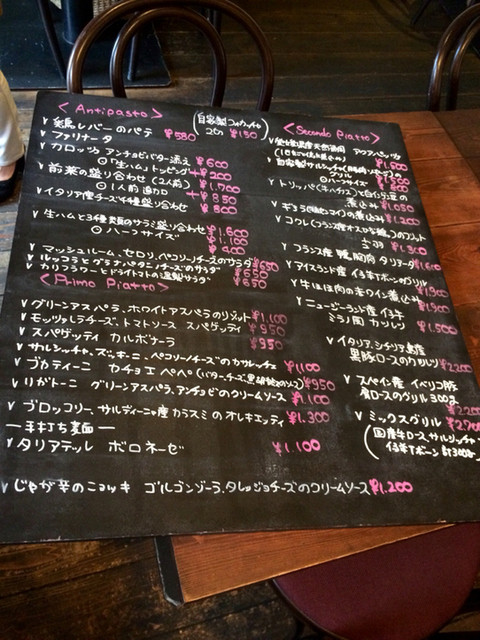 <Antipasto>
∨鶏レバーのパテ ¥580
(自家製フォカッチャ 2コ ¥150)
∨ファリナータ
∨カロッツァ アンチョビバター添え ¥600
◎「生ハム」トッピング +¥200
∨前菜の盛り合わせ(2人前) ¥1,700
◎1人前追加 +¥850
∨イタリア産チーズ4種盛り合わせ ¥800
∨生ハムと3種類のサラミ盛り合わせ ¥1,600
◎ハーフサイズ ¥1,100
¥900
∨マッシュルーム、セロリ、ペコリーノチーズのサラダ ¥650
∨ルッコラとグラナパダーノチーズのサラダ ¥650
∨カリフラワーとドライトマトの温製サラダ ¥650
<Primo Piatto>
∨グリーンアスパラ、ホワイトアスパラのリゾット ¥1,100
∨モッツァレラチーズ、トマトソース スパゲッティ ¥950
∨スパゲッティ カルボナーラ ¥950
∨サルシッチャ、ズッキーニ、ペコリーノチーズのカサレッチェ ¥1,100
∨ブカティーニ カチョエペペ(バターチーズ、黒胡椒のソース) ¥950
∨リガトーニ グリーンアスパラ、アンチョビのクリームソース ¥1,100
∨ブロッコリー、サルディーニャ産カラスミのオレキエッティ ¥1,300
―手打ち麺―
∨タリアテッレ ボロネーゼ ¥1,100
∨じゃが芋のニョッキ ゴルゴンゾーラ、タレッジョチーズのクリームソース ¥1,200
<Secondo Piatto>
アクアパッツァ
¥1,500
∨自家製サルシッチャ(豚肉ソーセージ)のグリル ¥1,600
◎ハーフサイズ ¥800
∨トリッパ(牛ハチノス)と白いんげん豆の煮込み ¥1,050
の煮込み ¥1,200
のコンフィ
¥1,300
∨フランス産 鴨胸肉 タリアータ ¥1,600
∨アイスランド産 仔羊Tボーンのグリル ¥1,900
∨牛ほほ肉の赤ワイン煮込み ¥1,900
∨ニュージーランド産 仔牛
ミラノ風カツレツ ¥1,500
∨イタリア、シチリア島産
黒豚ロースのグリル ¥2,200
∨スペイン産 イベリコ豚
肩ロースのグリル 300g ¥2,200
∨ミックスグリル ¥2,900
(国産牛ロース、サルシッチャ
仔羊Tボーン 計300g)